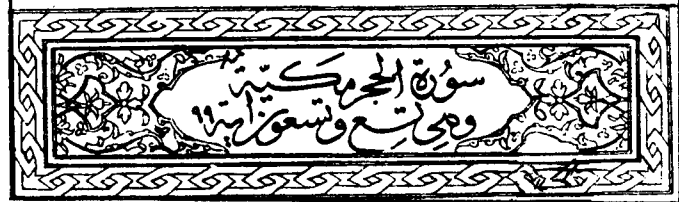 سورة الحجر مكية
وهي تسع وتسعون آية ٩٩